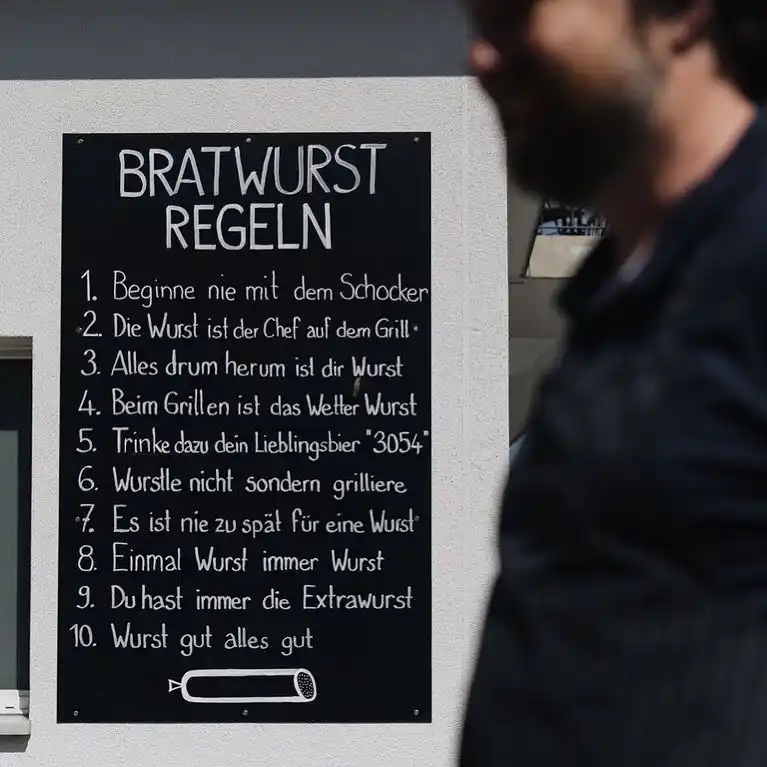 BRATWURST
REGELN
1. Beginne nie mit dem Schocker
2. Die Wurst ist der Chef auf dem Grill
3. Alles drum herum ist dir Wurst
4. Beim Grillen ist das Wetter Wurst
5. Trinke dazu dein Lieblingsbier "3054"
6. Wurstle nicht sondern grilliere
7. Es ist nie zu spät für eine Wurst
8. Einmal Wurst immer Wurst
9. Du hast immer die Extrawurst
10. Wurst gut alles gut